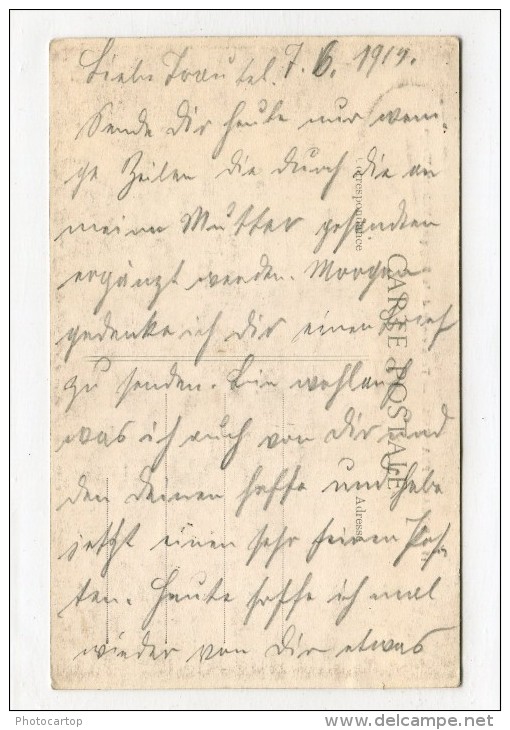 Liebe Trautel. 7. 6. 1919.
Sende Dir heute nur weni-
ge Zeilen die durch die an
meine Mutter gesandten
ergänzt werden. Morgen
gedenke ich Dir einen Brief
zu senden. Bin wohlauf
was ich auch von Dir und
den Deinen hoffe und habe
jetzt einen sehr feinen Pos-
ten. Heute hoffe ich mal
wieder von Dir etwas
Correspondance
CARTE POSTALE
Adresse
Photocartop
delcampe.net